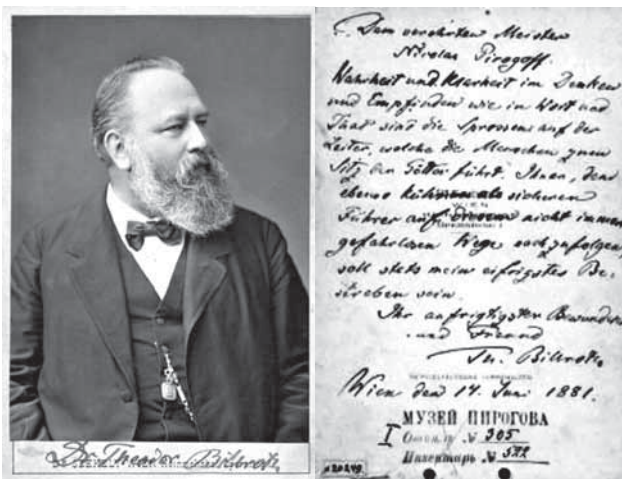 Dr. Theodor Billroth.
Dem verehrten Meister
Nicolas Pirogoff.
Wahrheit und Klarheit im Denken
und Empfinden wie in Wort und
That sind die Sprossen auf der
Leiter, welche die Menschen zum
Sitz der Götter führt. Ihnen, dem
ebenso kühnen als sicheren
Führer auf diesem nicht immer
gefahrlosen Wege nachzufolgen,
soll stets mein eifrigstes Be-
streben sein.
Ihr aufrichtigster Bewunderer
und Freund
Th. Billroth
Wien den 14. Juni 1881.
МУЗЕЙ ПИРОГОВА
I № 305
Инвентарь № 522